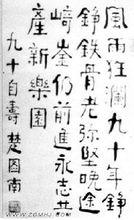 風雨狂瀾九十年錚
錚鐵骨老弥堅晚途
崎崟仍前進永志共
產新樂園
九十自壽 楚圖南